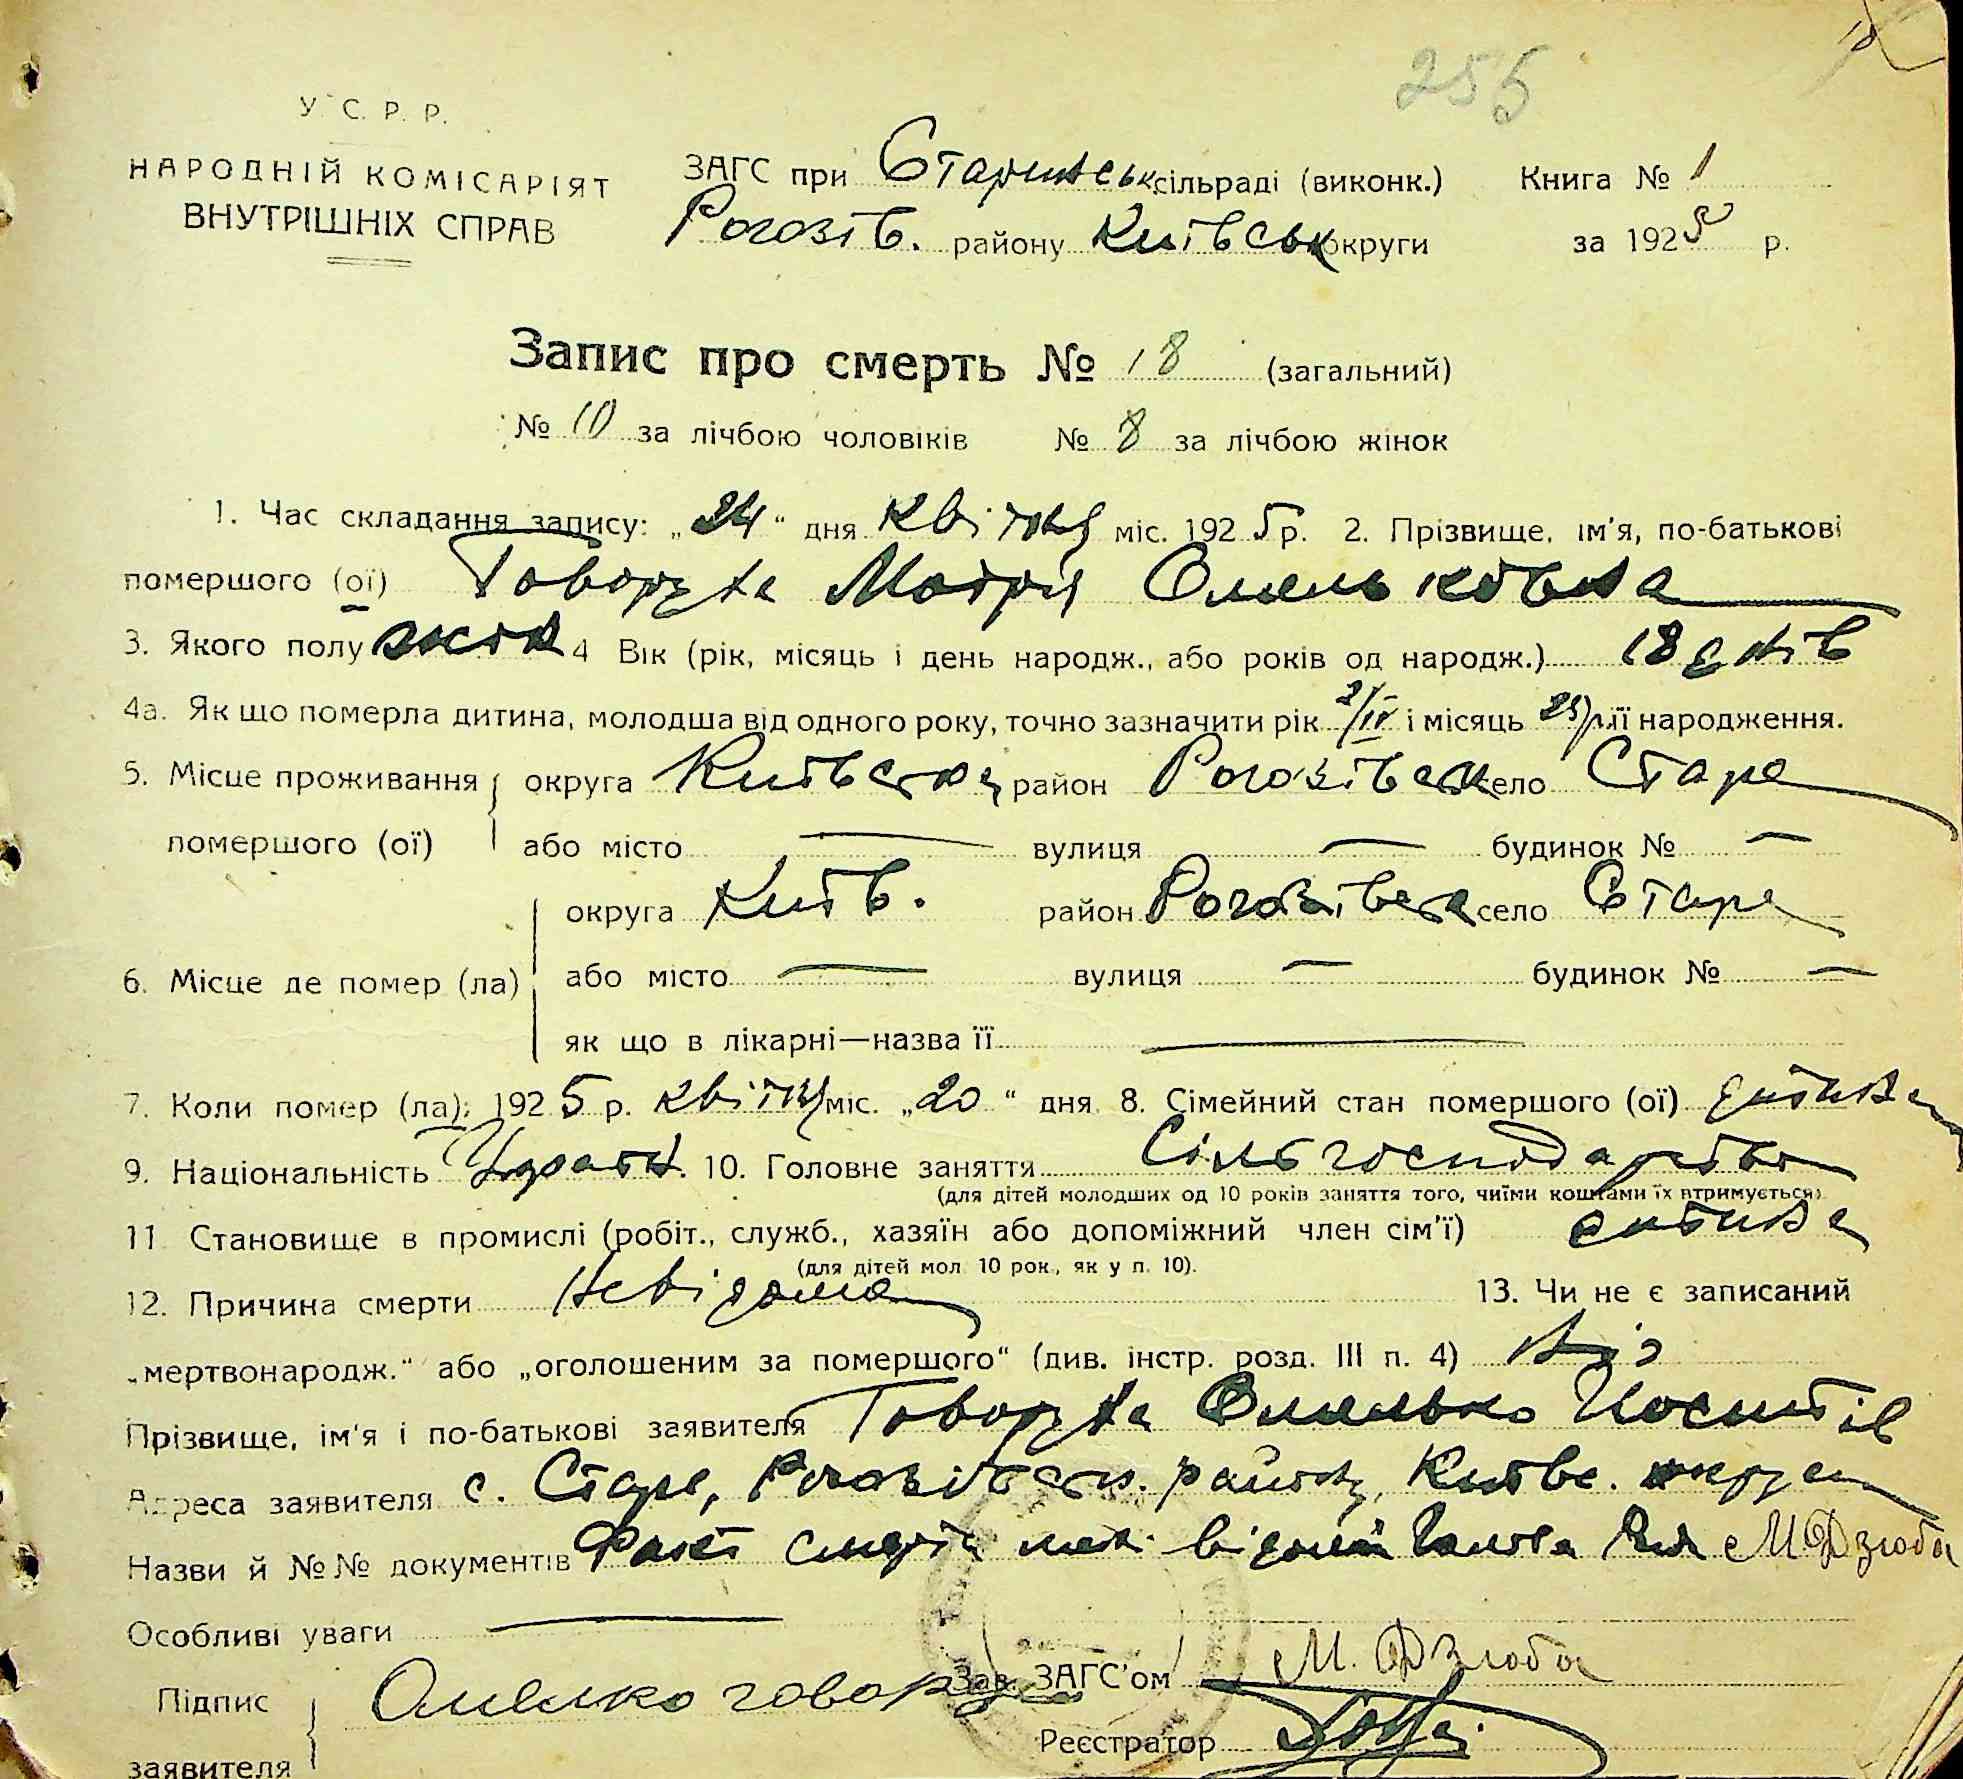 255
У. С. Р. Р.
НАРОДНІЙ КОМІСАРІЯТ
ВНУТРІШНІХ СПРАВ
ЗАГС при Старинськ сільраді (виконк.) Книга № 1
Рогозів. району Київськ округи за 1925 р.
Запис про смерть № 18 (загальний)
№ 10 за лічбою чоловіків № 8 за лічбою жінок
1. Час складання запису: „24“ дня квітня міс. 1925 р. 2. Прізвище, ім'я, по-батькові
помершого (ої) Говоруха Мотря Омельковна
3. Якого полу жін 4 Вік (рік, місяць і день народж., або років од народж.) 18 днів
4а. Як що померла дитина, молодша від одного року, точно зазначити рік 2/IV і місяць 25 р. її народження.
5. Місце проживання округа Київська район Рогозівськ село Старе
помершого (ої) або місто — вулиця — будинок № —
округа Київ. район Рогозівська село Старе
6. Місце де помер (ла) або місто — вулиця — будинок № —
як що в лікарні—назва її —
7. Коли помер (ла): 1925 р. квітня міс. „20“ дня 8. Сімейний стан помершого (ої) дитина
9. Національність Україн. 10. Головне заняття Сільгосподарство
(для дітей молодших од 10 років заняття того, чиїми коштами їх втримується)
11 Становище в промислі (робіт., служб., хазяїн або допоміжний член сім'ї) дитина
(для дітей мол. 10 рок., як у п. 10).
12. Причина смерти Невідома 13. Чи не є записаний
„мертвонародж.“ або „оголошеним за помершого“ (див. інстр. розд. III п. 4) Ні
Прізвище, ім'я і по-батькові заявителя Говоруха Омелько Йосипів
Адреса заявителя с. Старе, Рогозівськ. району, Київс. округи
Назви й №№ документів Факт смерти мені відомий Голова М Дзюба
Особливі уваги —
Підпис Омелько говору Зав. ЗАГС'ом М. Дзюба
заявителя Реєстратор